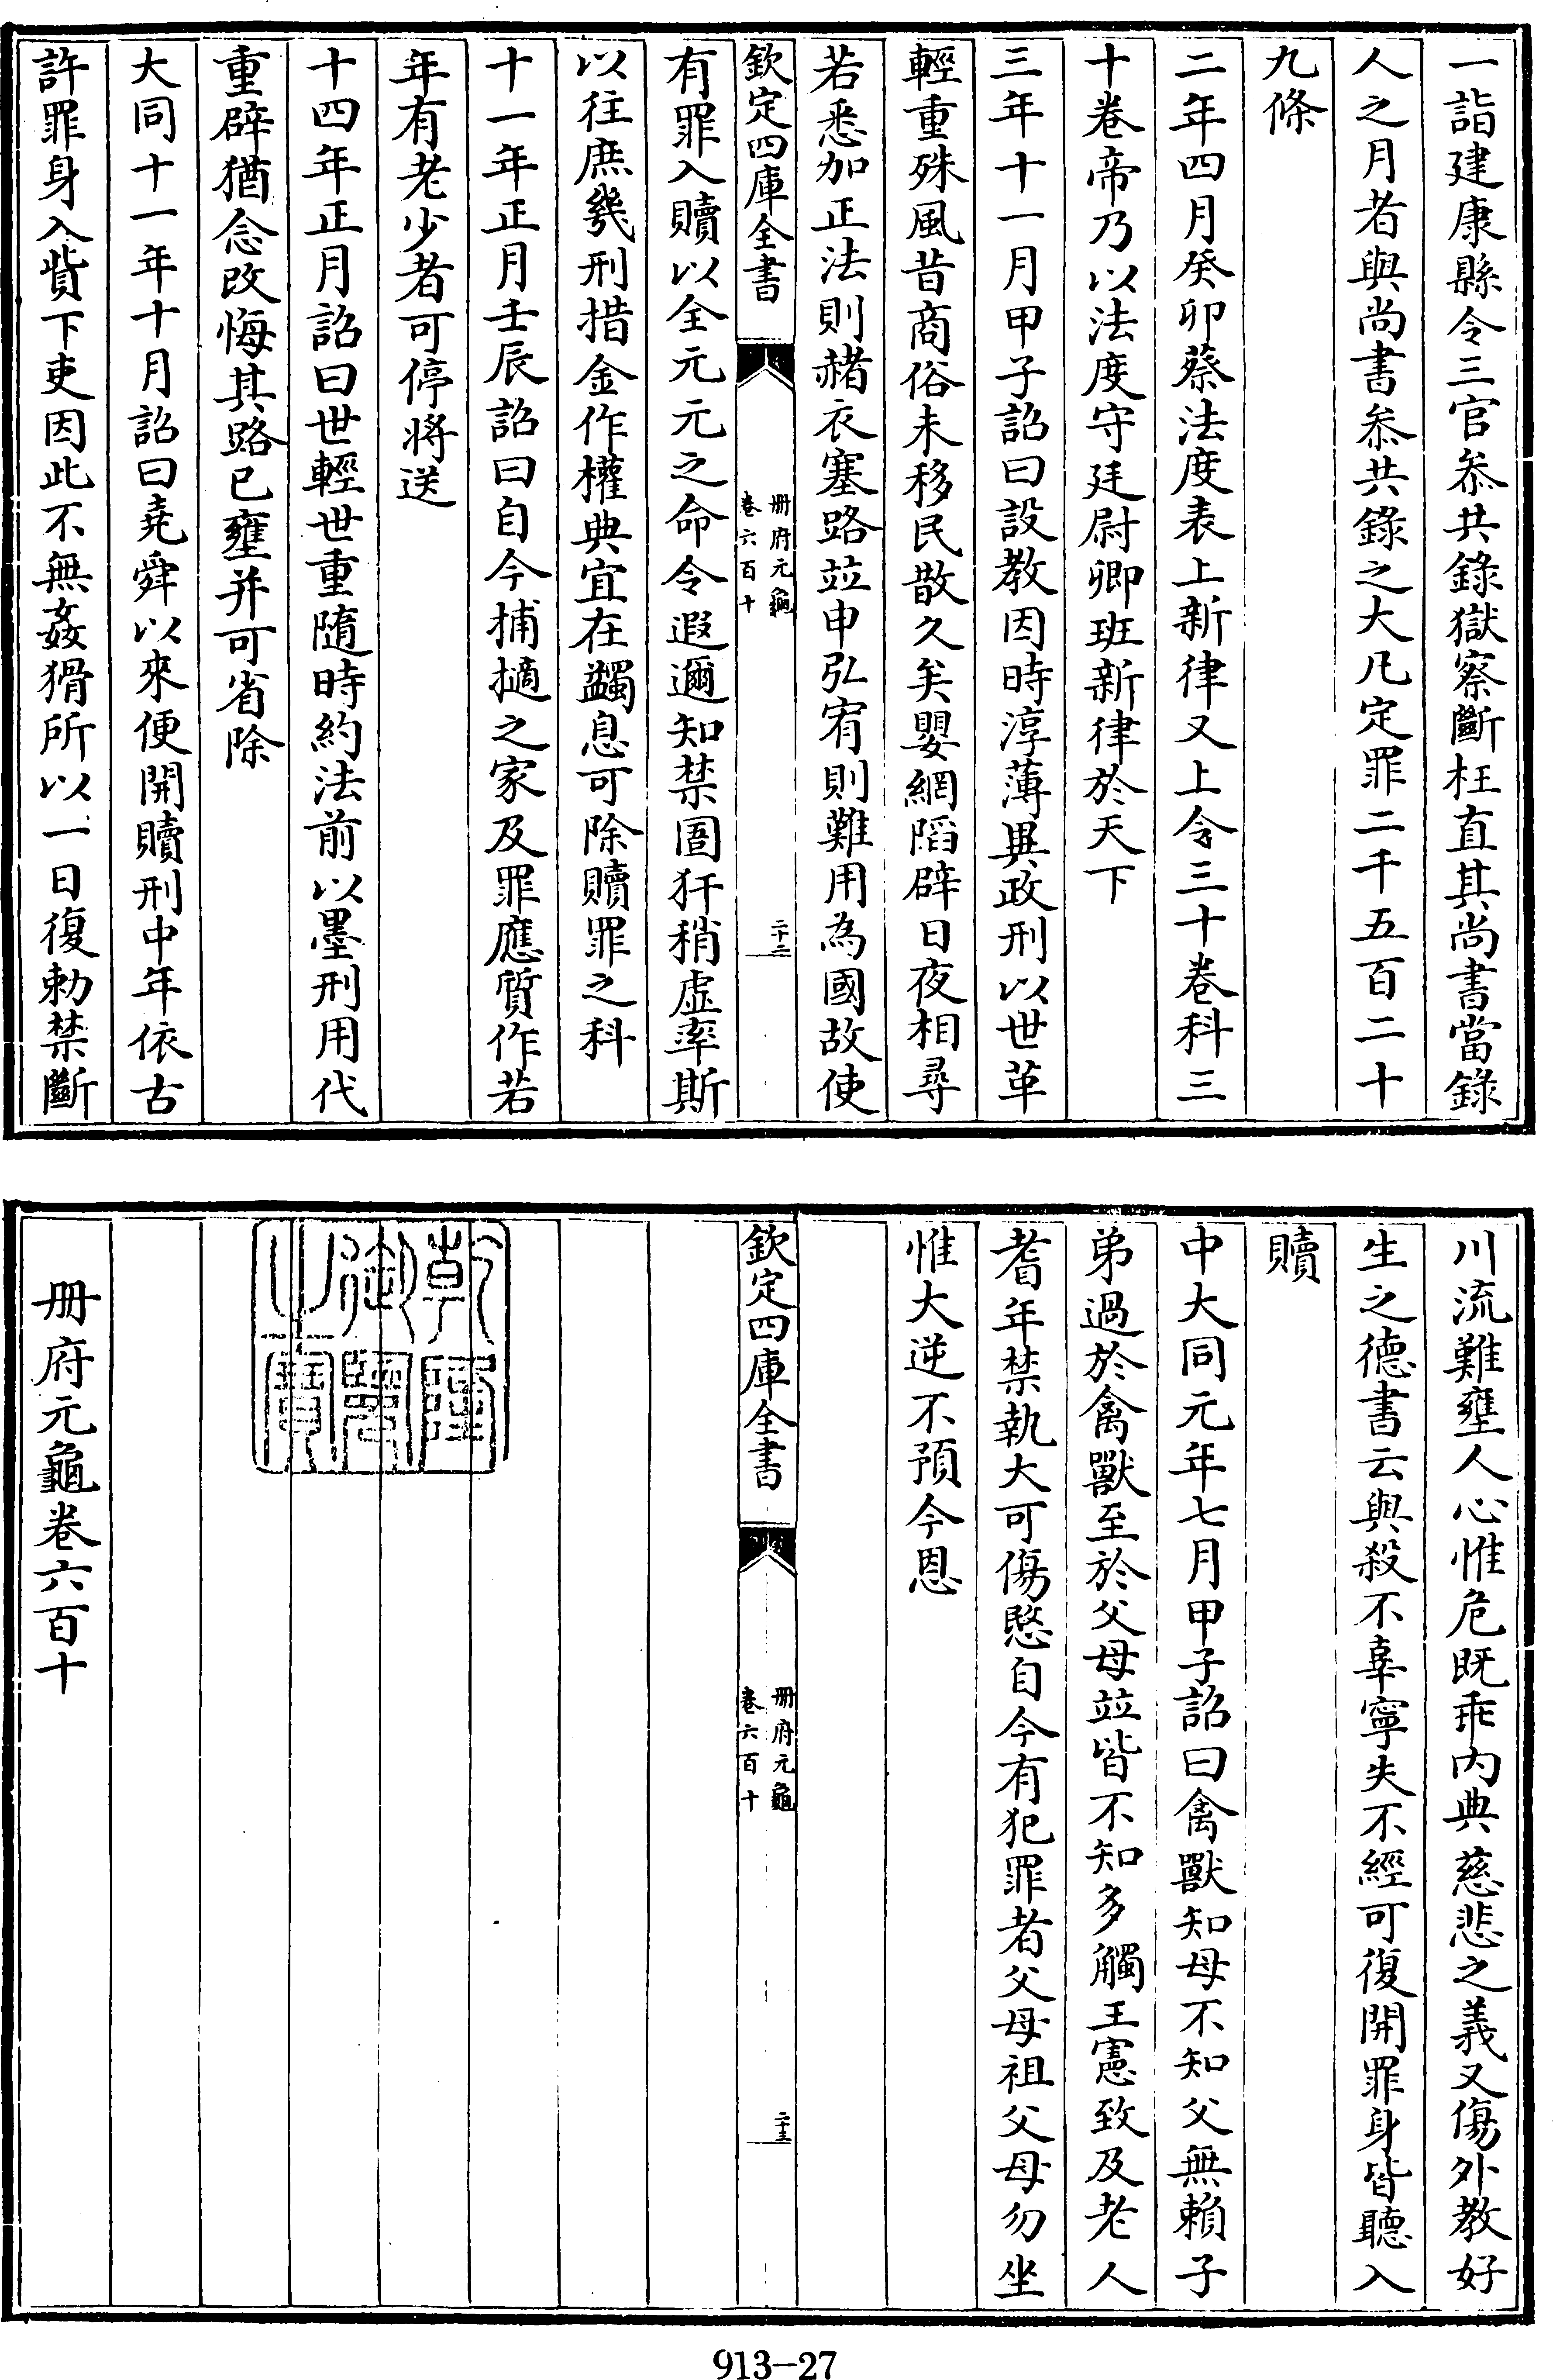 一詣建康縣令三官叅共錄獄察斷枉直其尚書當錄
人之月者與尚書叅共錄之大凡定罪二千五百二十
九條
二年四月癸卯蔡法度表上新律又上令三十卷科三
十卷帝乃以法度守廷尉卿班新律於天下
三年十一月甲子詔曰設教因時淳薄異政刑以世革
輕重殊風昔商俗未移民散久矣嬰網陷辟日夜相尋
若悉加正法則赭衣塞路竝申弘宥則難用為國故使
欽定四庫全書
冊府元龜
卷六百十
二十二
有罪入贖以全元元之命令遐邇知禁圄犴稍虛率斯
以往庶幾刑措金作權典宜在蠲息可除贖罪之科
十一年正月壬辰詔曰自今捕擿之家及罪應質作若
年有老少者可停將送
十四年正月詔曰世輕世重隨時約法前以墨刑用代
重辟猶念改悔其路已壅并可省除
大同十一年十月詔曰堯舜以來便開贖刑中年依古
許罪身入貲下吏因此不無姦猾所以一日復勅禁斷
川流難壅人心惟危既乖內典慈悲之義又傷外教好
生之德書云與殺不辜寧失不經可復開罪身皆聽入
贖
中大同元年七月甲子詔曰禽獸知母不知父無賴子
弟過於禽獸至於父母竝皆不知多觸王憲致及老人
耆年禁執大可傷愍自今有犯罪者父母祖父母勿坐
惟大逆不預今恩
欽定四庫全書
冊府元龜
卷六百十
二十三
乾隆
御覽
之寶
冊府元龜卷六百十
913-27